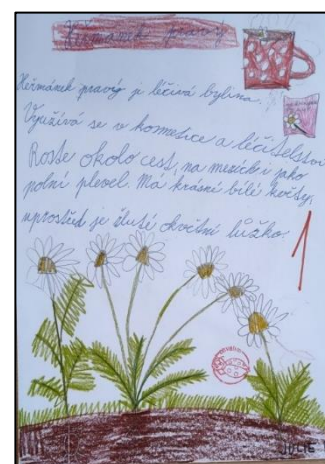 Heřmánek pravý
Heřmánek pravý je léčivá bylina.
Využívá se v kosmetice a léčitelství
Roste okolo cest, na mezích i jako
polní plevel. Má krásné bílé květy,
uprostřed je žluté okvětní lůžko.
1
JULIE